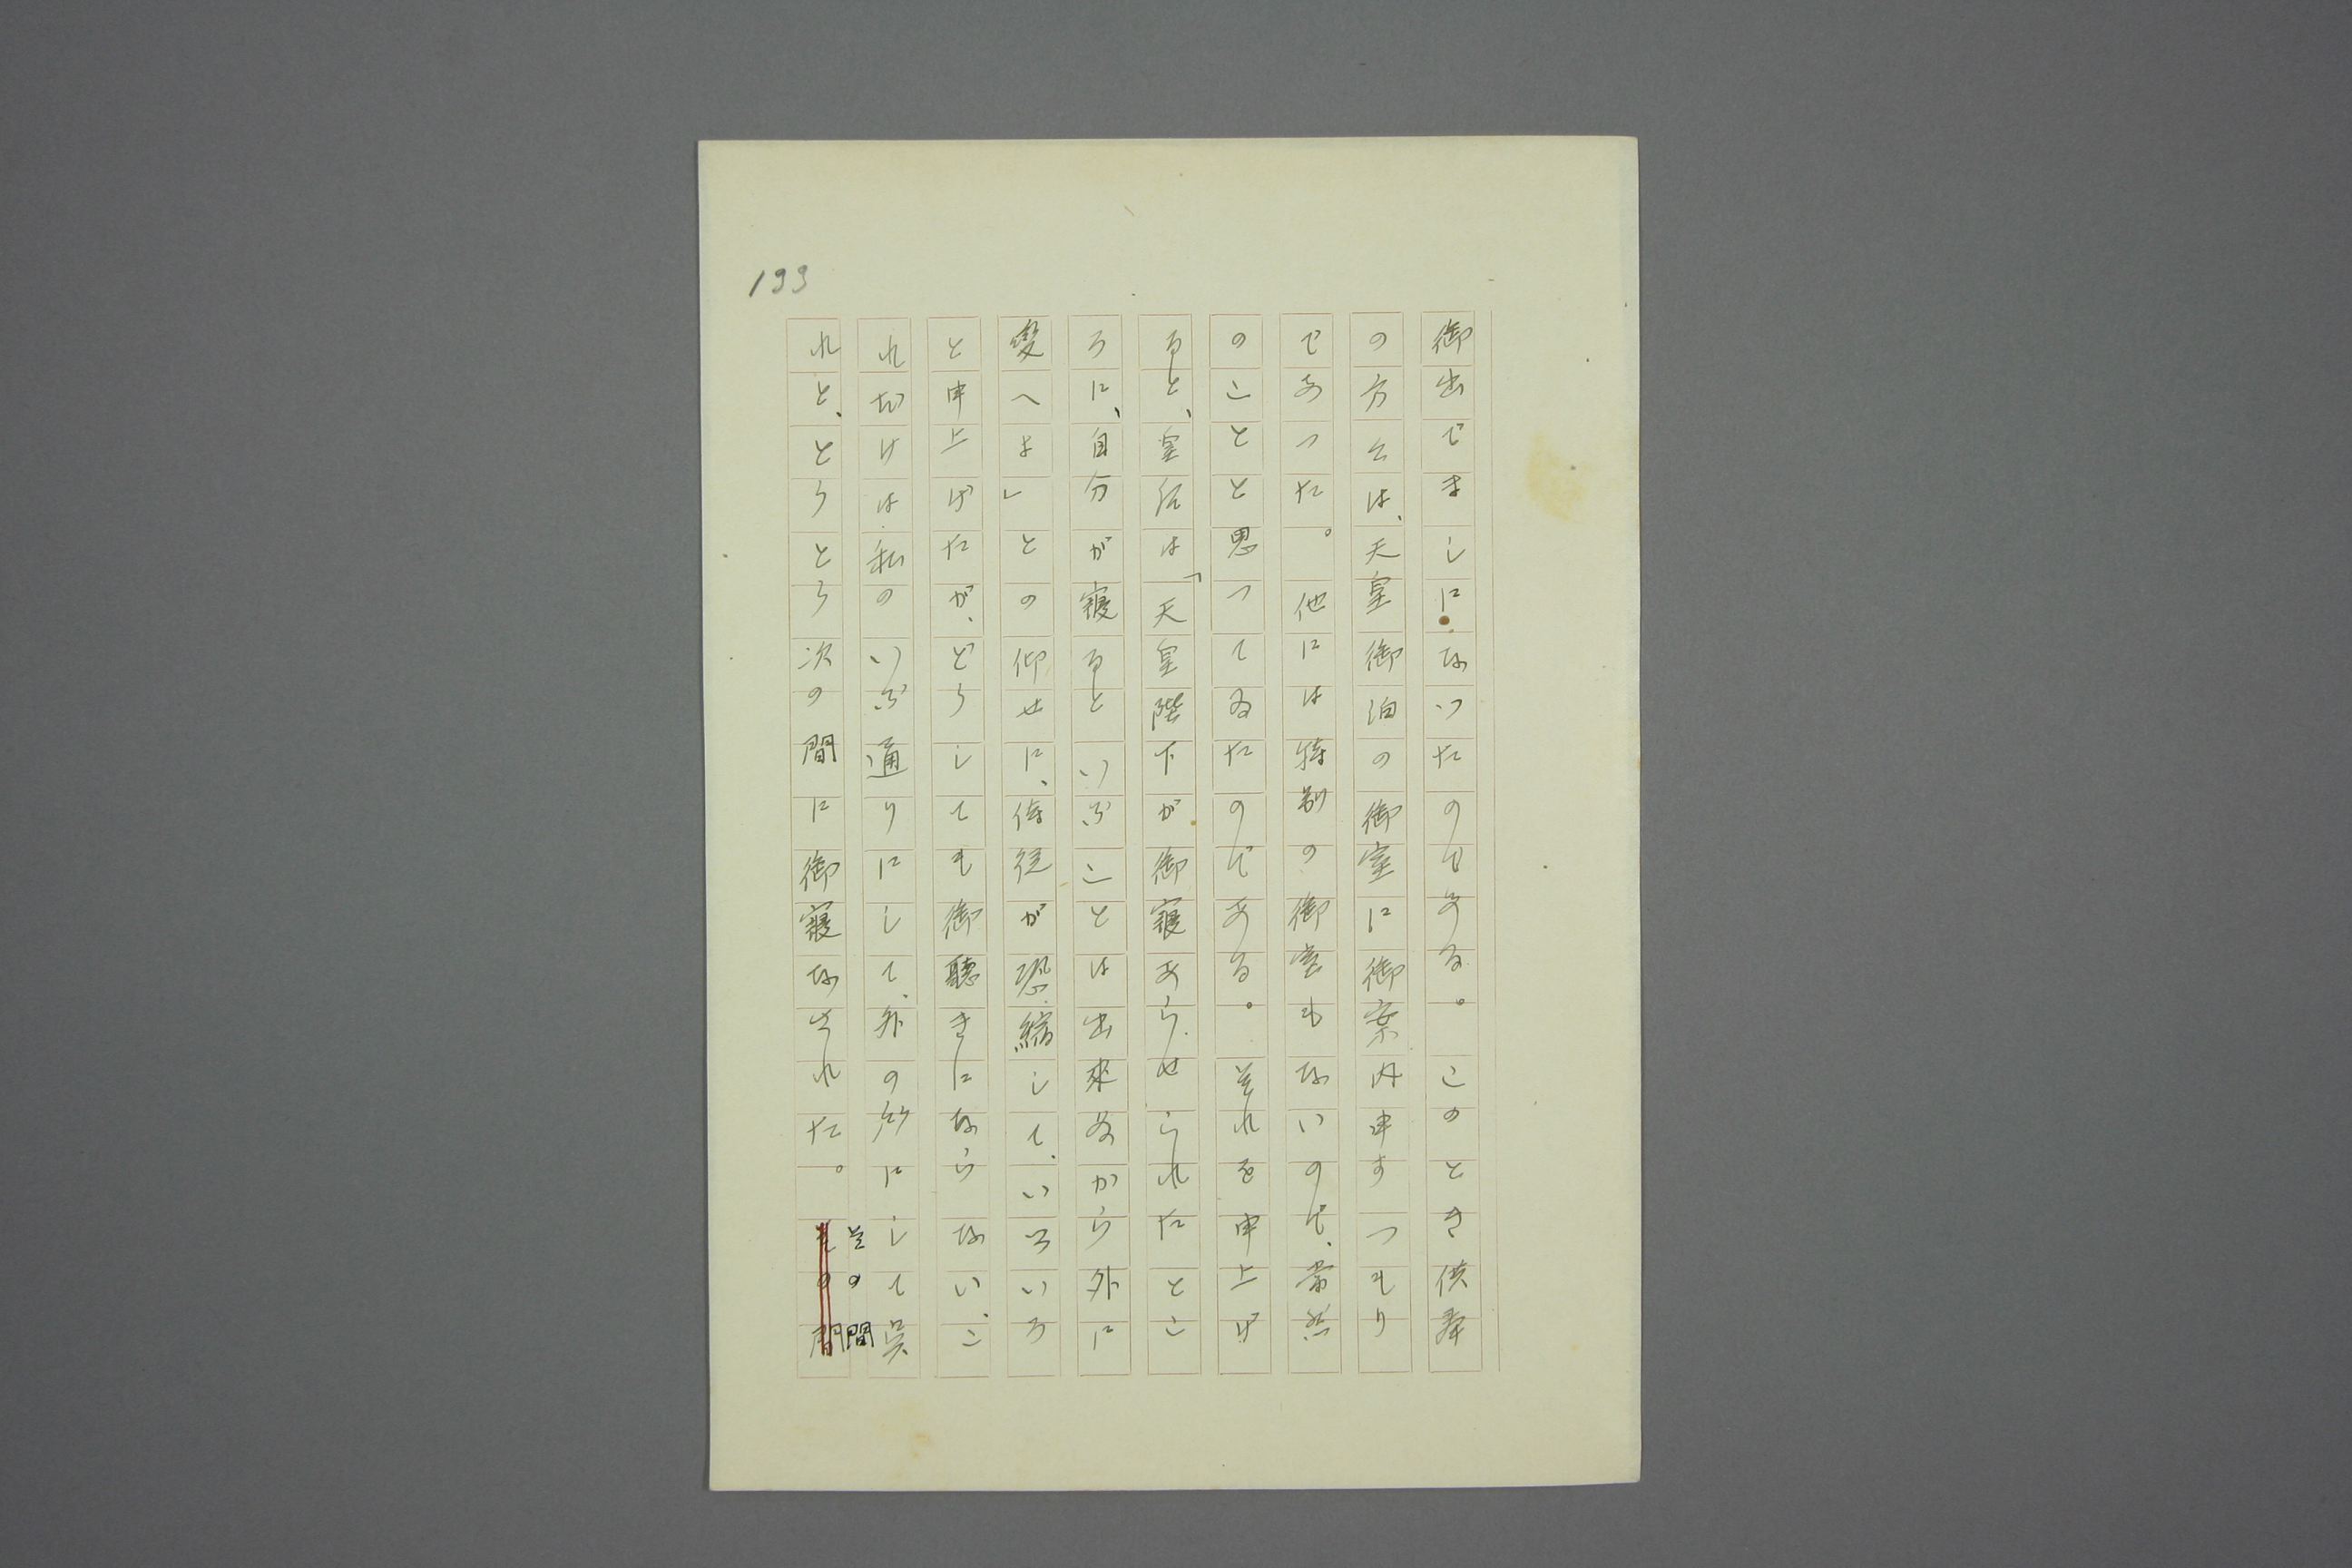 193
御出でましになつたのである。このとき供奉
の方々は、天皇御泊の御室に御案内申すつもり
であつた。他には特別の御室もないので、當然
のことと思つてゐたのである。それを申上げ
ると、皇后は「天皇陛下が御寝あらせられたとこ
ろに、自分が寝るといふことは出來ぬから外に
變へよ」との仰せに、侍従が恐縮して、いろいろ
と申上げたが、どうしても御聽きにならない、こ
れだけは私のいふ通りにして、外の処にして呉
れと、とうとう次の間に御寝なされた。その間
その間